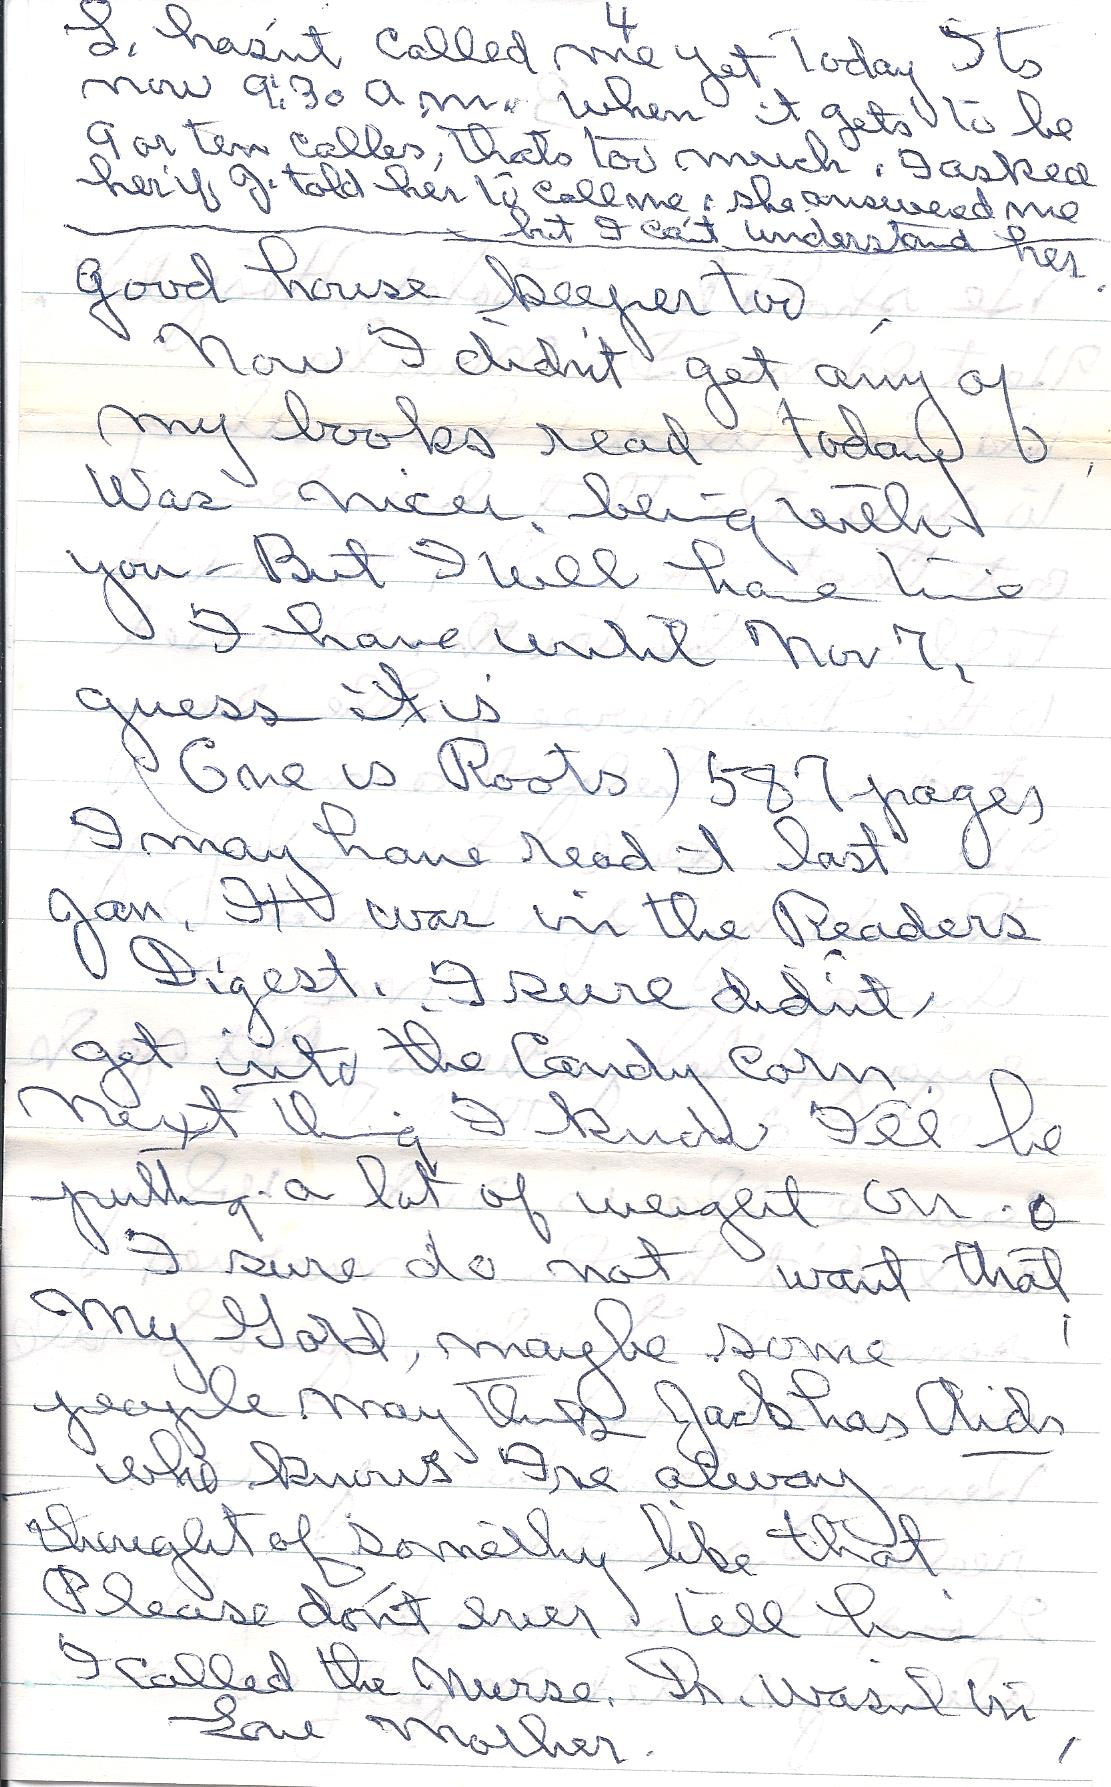 4
L. hasn't called me yet Today Its
now 9:30 a.m. when it gets to be
9 or ten calles, thats too much. I asked
her if J. told her to call me. she answered me
but I ca't understand her.
good house keeper too
Now I didn't get any of
my books read today
Was nicer being with
you - But I will have time
I have until Nov 7,
guess it is
(One is Roots) 587 pages
I may have read it last
Jan. It was in the Readers
Digest. I sure didn't
get into the Candy corn.
Next thing I know I'll be
putting a lot of weight on.
I sure do not want that
My God, maybe some
people may think Jack has Aids
who knows I've alway
thought of somethy like that
Please don't ever tell him
I called the Nurse. Dr. wasn't in
Love Mother.